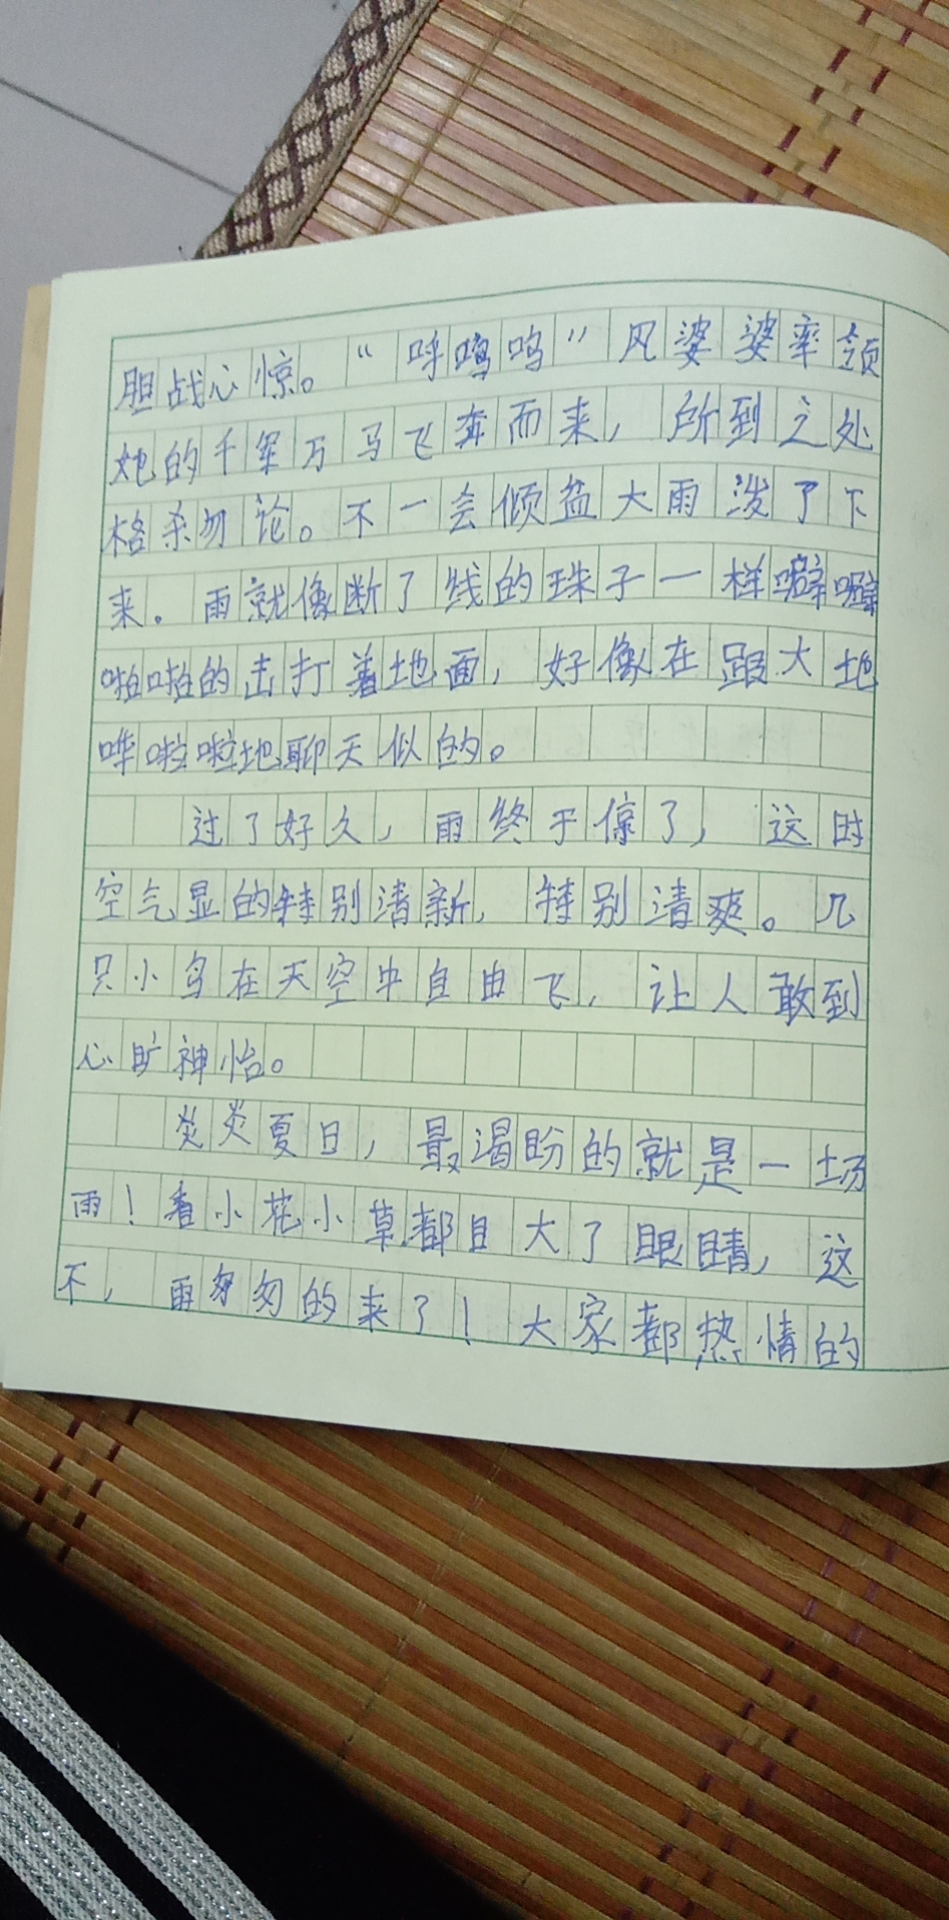 胆战心惊。“呼呜呜”风婆婆率领
她的千军万马飞奔而来，所到之处
格杀勿论。不一会倾盆大雨泼了下
来。雨就像断了线的珠子一样噼噼
啪啪的击打着地面，好像在跟大地
哗啦啦地聊天似的。
过了好久，雨终于停了，这时
空气显的特别清新，特别清爽。几
只小鸟在天空中自由飞，让人敢到
心旷神怡。
炎炎夏日，最渴盼的就是一场
雨！看小花小草都目大了眼睛，这
不，雨匆匆的来了！大家都热情的